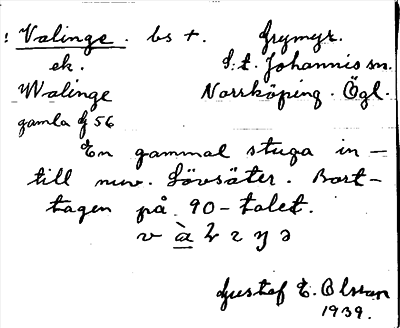 : Valinge. bs +. Grymyr.
ek. S:t. Johannis sn.
Walinge Norrköping. Ögl.
gamla f 56
En gammal stuga in-
till nuv. Lövsäter. Bort-
tagen på 90-talet.
Gustaf E. Olsson
1939.